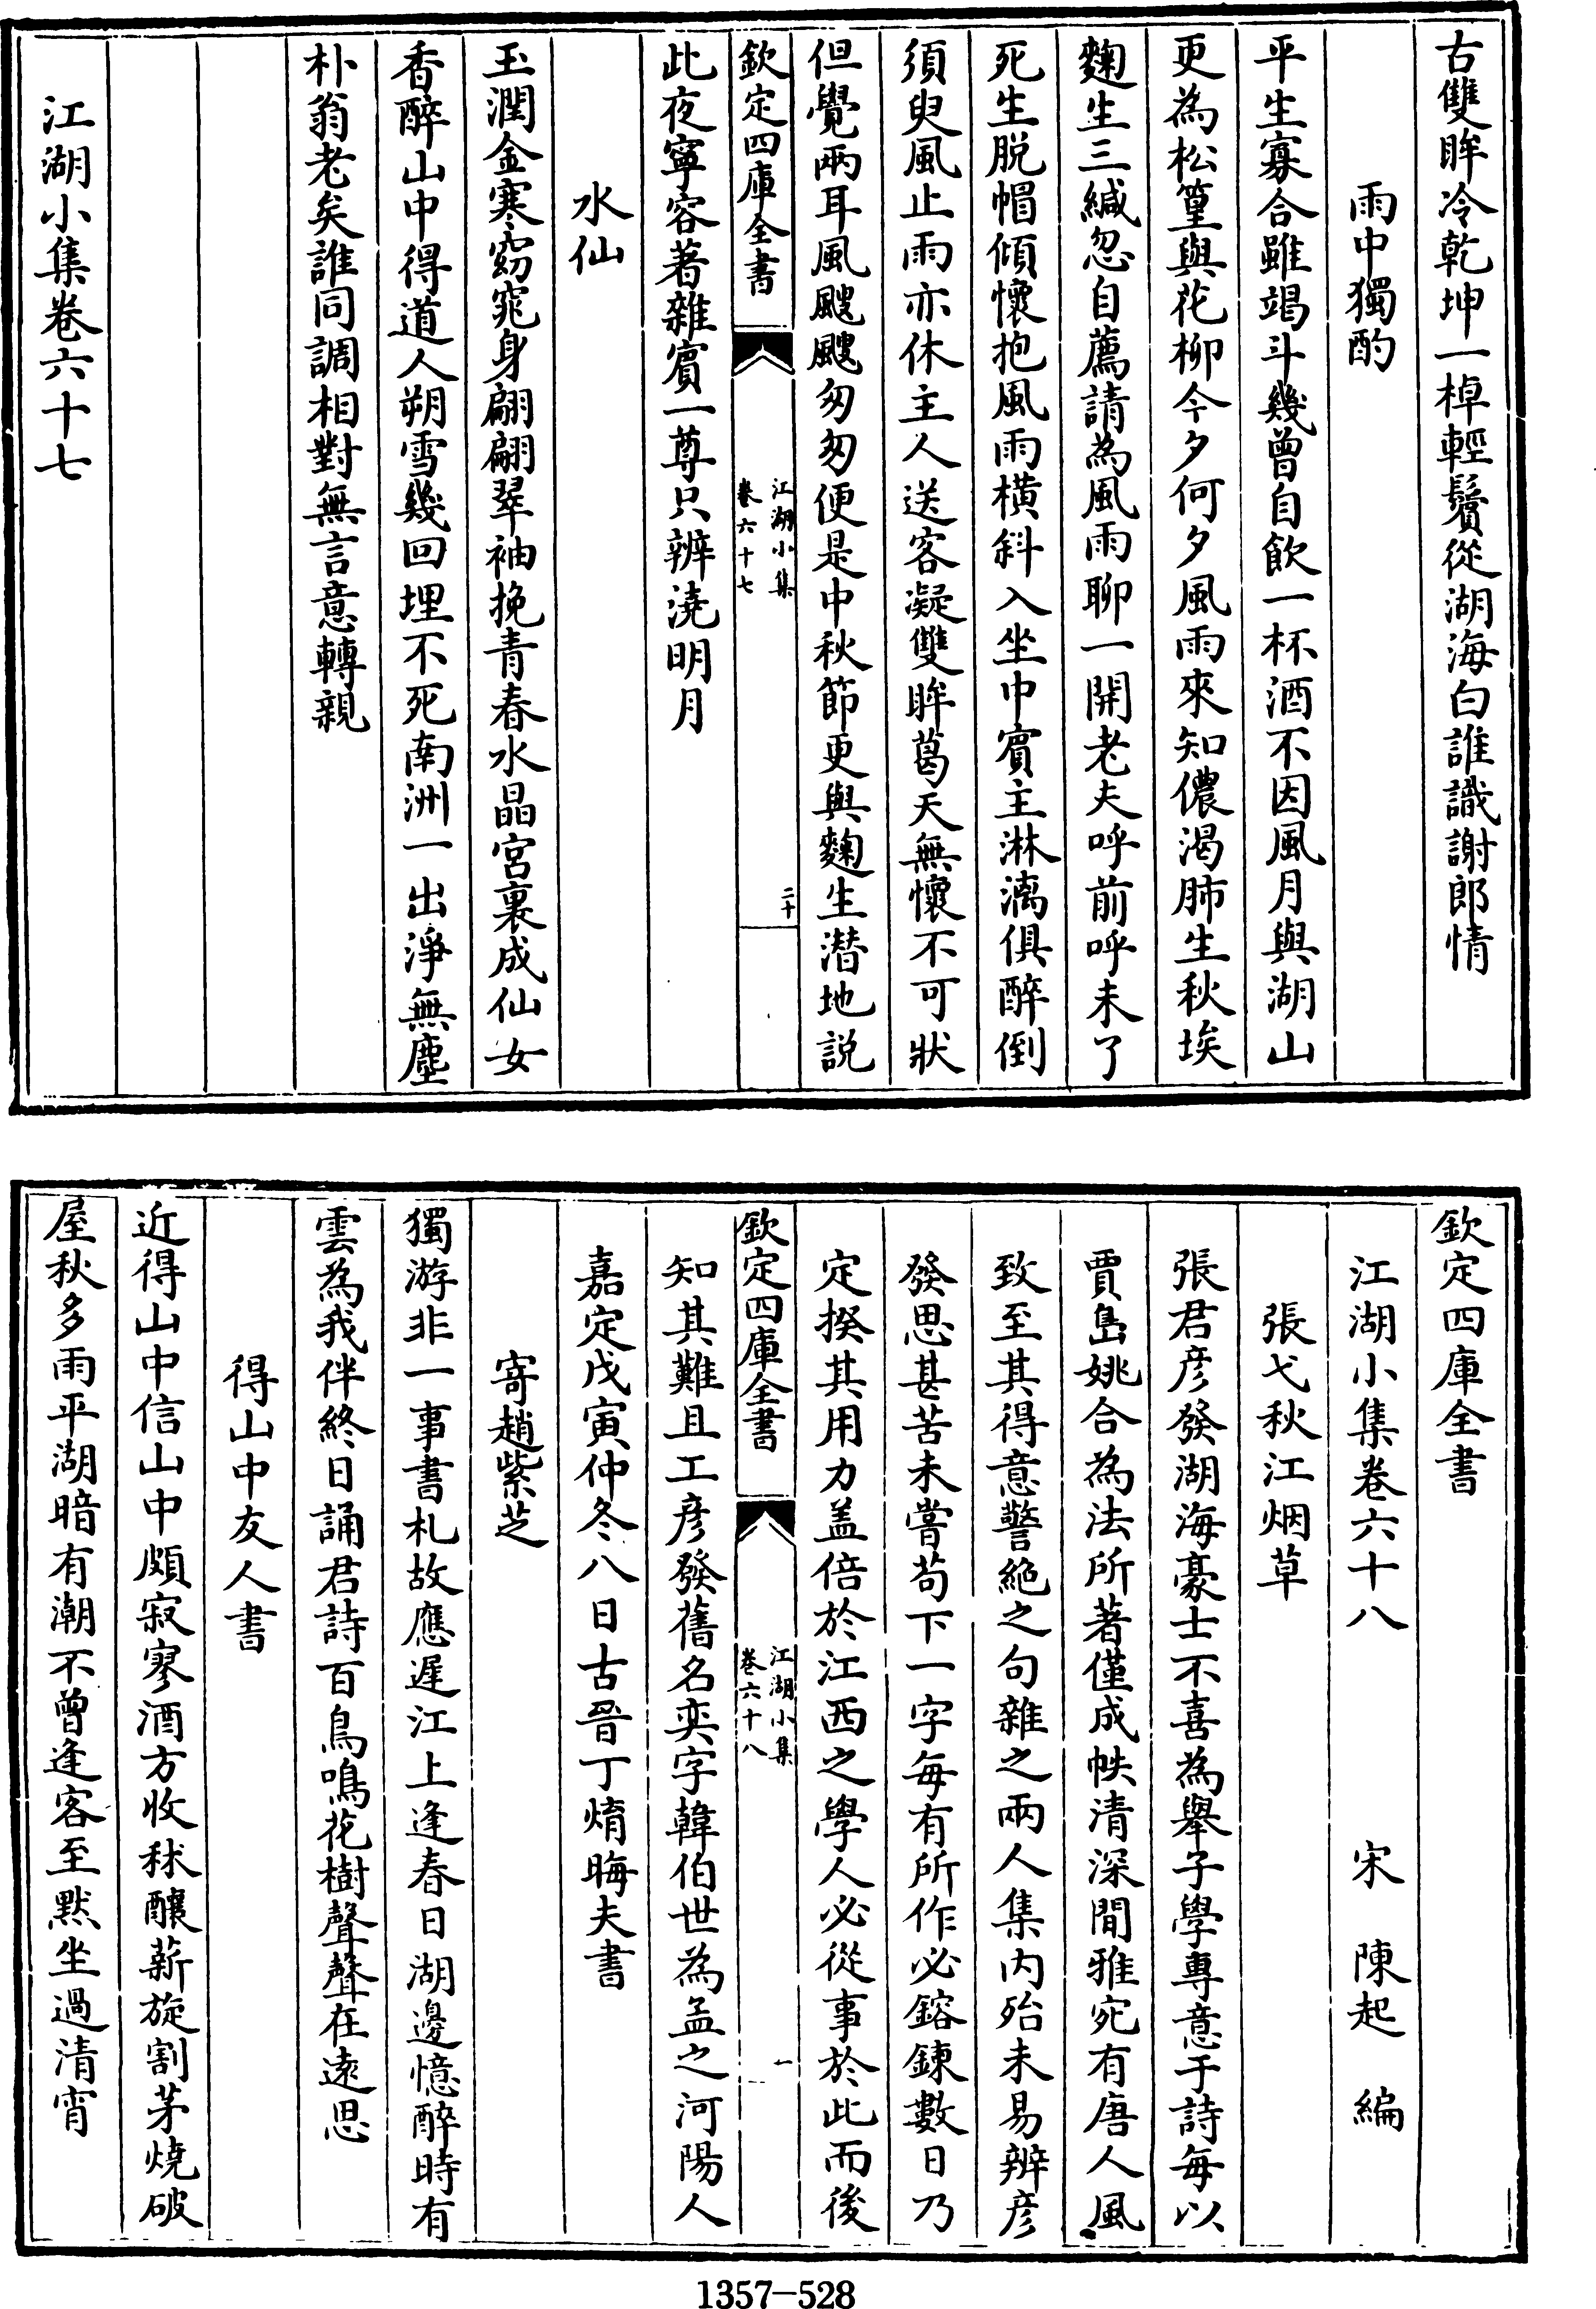 古雙眸冷乾坤一棹輕鬢從湖海白誰識謝郎情
雨中獨酌
平生寡合雖竭斗幾曾自飲一杯酒不因風月與湖山
更為松篁與花柳今夕何夕風雨來知儂渴肺生秋埃
麴生三緘忽自薦請為風雨聊一開老夫呼前呼未了
死生脱帽傾懷抱風雨橫斜入坐中賓主淋漓俱醉倒
須臾風止雨亦休主人送客凝雙眸葛天無懷不可狀
但覺兩耳風颼颼匆匆便是中秋節更與麴生潛地説
欽定四庫全書
江湖小集
卷六十七
二十
此夜寧容著雜賓一尊只辨澆明月
水仙
玉潤金寒窈窕身翩翩翠袖挽青春水晶宮裏成仙女
香醉山中得道人朔雪幾回埋不死南洲一出淨無塵
朴翁老矣誰同調相對無言意轉親
江湖小集卷六十七
欽定四庫全書
江湖小集卷六十八 宋 陳起 編
張弋秋江烟草
張君彦發湖海豪士不喜為舉子學專意于詩每以
賈島姚合為法所著僅成帙清深閒雅宛有唐人風
致至其得意警絶之句雜之兩人集内殆未易辨彦
發思甚苦未嘗苟下一字每有所作必鎔鍊數日乃
定揆其用力盖倍於江西之學人必從事於此而後
欽定四庫全書
江湖小集
卷六十八
一
知其難且工彦發舊名奕字韓伯世為孟之河陽人
嘉定戊寅仲冬八日古晉丁焴晦夫書
寄趙紫芝
獨游非一事書札故應遲江上逢春日湖邊憶醉時有
雲為我伴終日誦君詩百鳥鳴花樹聲聲在遠思
得山中友人書
近得山中信山中頗寂寥酒方收秫釀薪旋割茅燒破
屋秋多雨平湖暗有潮不曾逢客至默坐過清宵
1357-528